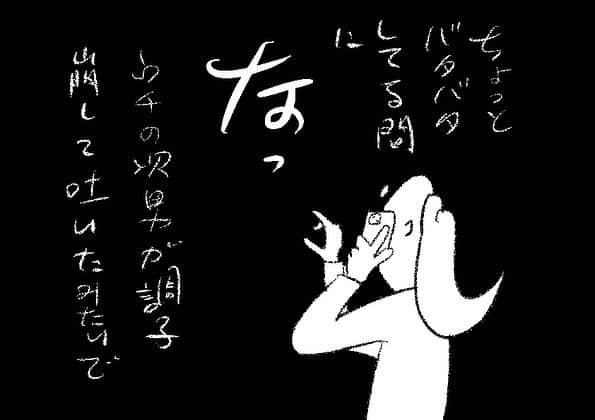 ちょっと
バタバタ
してる間
に
なっ
ウチの次男が調子
崩して吐いたみたいで